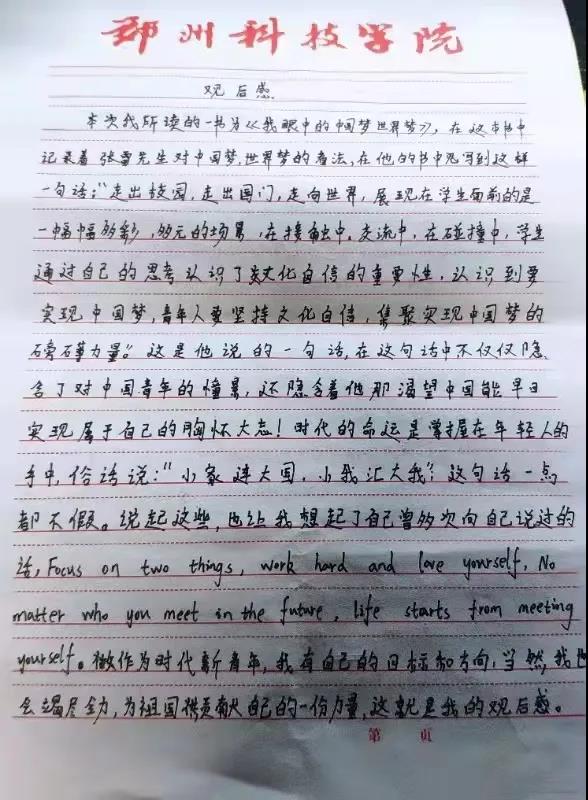 郑州科技学院
观后感
本次我所读的一书为《我眼中的中国梦世界梦》，在这本书中
记录着张雷先生对中国梦世界梦的看法，在他的书中见写到这样
一句话："走出校园，走出国门，走向世界，展现在学生面前的是
一幅幅多彩，多元的场景，在接触中，交流中，在碰撞中，学生
通过自己的思考认识了文化自信的重要性，认识到要
实现中国梦，青年人要坚持文化自信，集聚实现中国梦的
磅礴力量。"这是他说的一句话，在这句话中不仅仅隐
含了对中国青年的憧憬，还隐含着他那渴望中国能早日
实现属于自己的胸怀大志！时代的命运是掌握在年轻人的
手中，俗话说："小家连大国，小我汇大我"，这句话一点
都不假。说起这些，也让我想起了自己曾多次向自己说过的
话，Focus on two things, work hard and love yourself, No
matter who you meet in the future, life starts from meeting
yourself。做作为时代新青年，我有自己的目标和方向，当然，我也
会竭尽全力，为祖国供贡献自己的一份力量，这就是我的观后感。
第 页